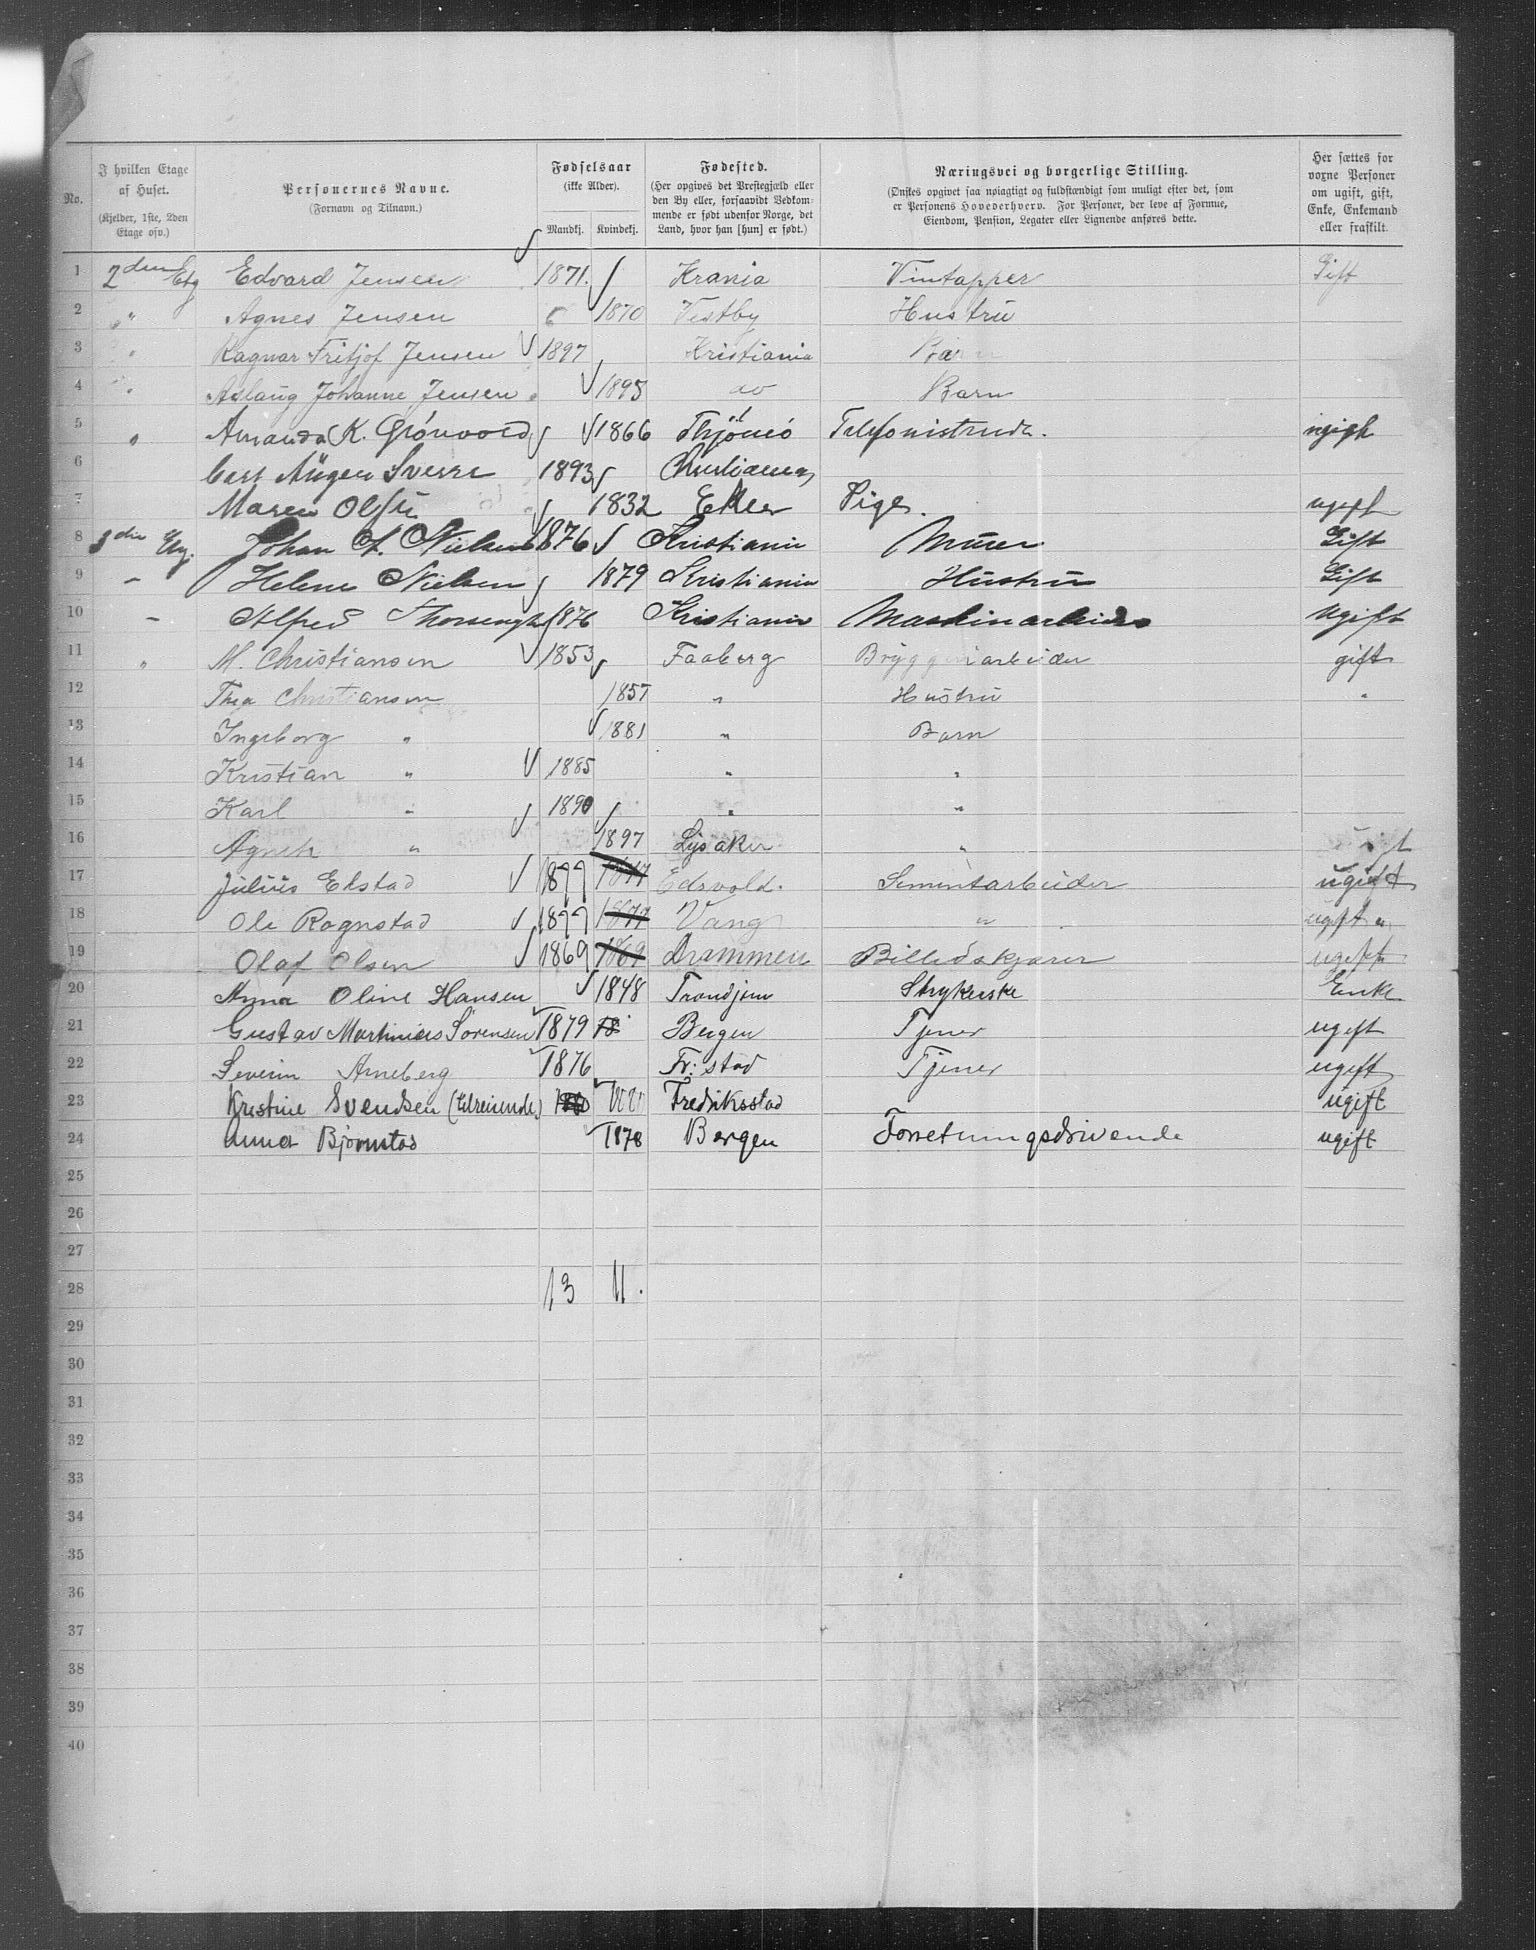 No.
I hvilken Etage af Huset. (Kjelder, 1ste, 2den Etage osv.)
Personernes Navne. (Fornavn og Tilnavn.)
Fødselsaar (ikke Alder). Mandkj. Kvindekj.
Fødested. (Her opgives det Prestegjæld eller den By eller, forsaavidt Vedkommende er født udenfor Norge, det Land, hvor han [hun] er født.)
Næringsvei og borgerlige Stilling. (Ønskes opgivet saa nøiagtigt og fuldstændigt som muligt efter det, som er Personens Hovederhverv. For Personer, der leve af Formue, Eiendom, Pension, Legater eller Lignende anføres dette.
Her sættes for voxne Personer om ugift, gift, Enke, Enkemand eller fraskilt.
1 2den Etg Edvard Jensen 1871. Krania Vintapper Gift
2 " Agnes Jensen 1870 Vestby Hustru
3 " Ragnar Fritjof Jensen 1897 Kristiania Barn
4 " Aslaug Johanne Jensen 1895 do Barn
5 " Amanda K. Grönvold 1866 Thjömö ugift
6 Carl Sverre 1893 Christiania
7 Maren Olsen 1832 Eker Pige. ugift
8 3die Etg. Johan A. Nielsen 1876 Kristiania Murer Gift
9 – Helene Nielsen 1879 Kristiania Hustru Gift
10 – Alfred 1876 Kristiania Maskinarbeider Ugift
11 " M. Christiansen 1853 Faaberg Bryggeriarbeider gift
12 Thea Christiansen 1857 " Hustru "
13 Ingeborg " 1881 " Barn
14 Kristian " 1885 " "
15 Karl " 1890 " "
16 Agneth " 1897 Lysaker "
17 Julius Ekstad 1877 1877 Edsvold. Sementarbeider ugift
18 Ole Rognstad 1877 1877 Vang " ugift "
19 Olaf Olsen 1869 1869 Drammen Billedskjærer ugift
20 Anna Oline Hansen 1848 Trondjem Strykerske Enke
21 Gustav Martinius Sörensen 1879 18 Bergen Tjener ugift
22 Severin Arneberg 1876 Fr:stad Tjener ugift
23 Kristine Svendsen (tilreisende) Fredriksstad ugift
24 Anna Björnstad 1878 Bergen Forretningsdrivende ugift
25
26
27
28 13 11.
29
30
31
32
33
34
35
36
37
38
39
40